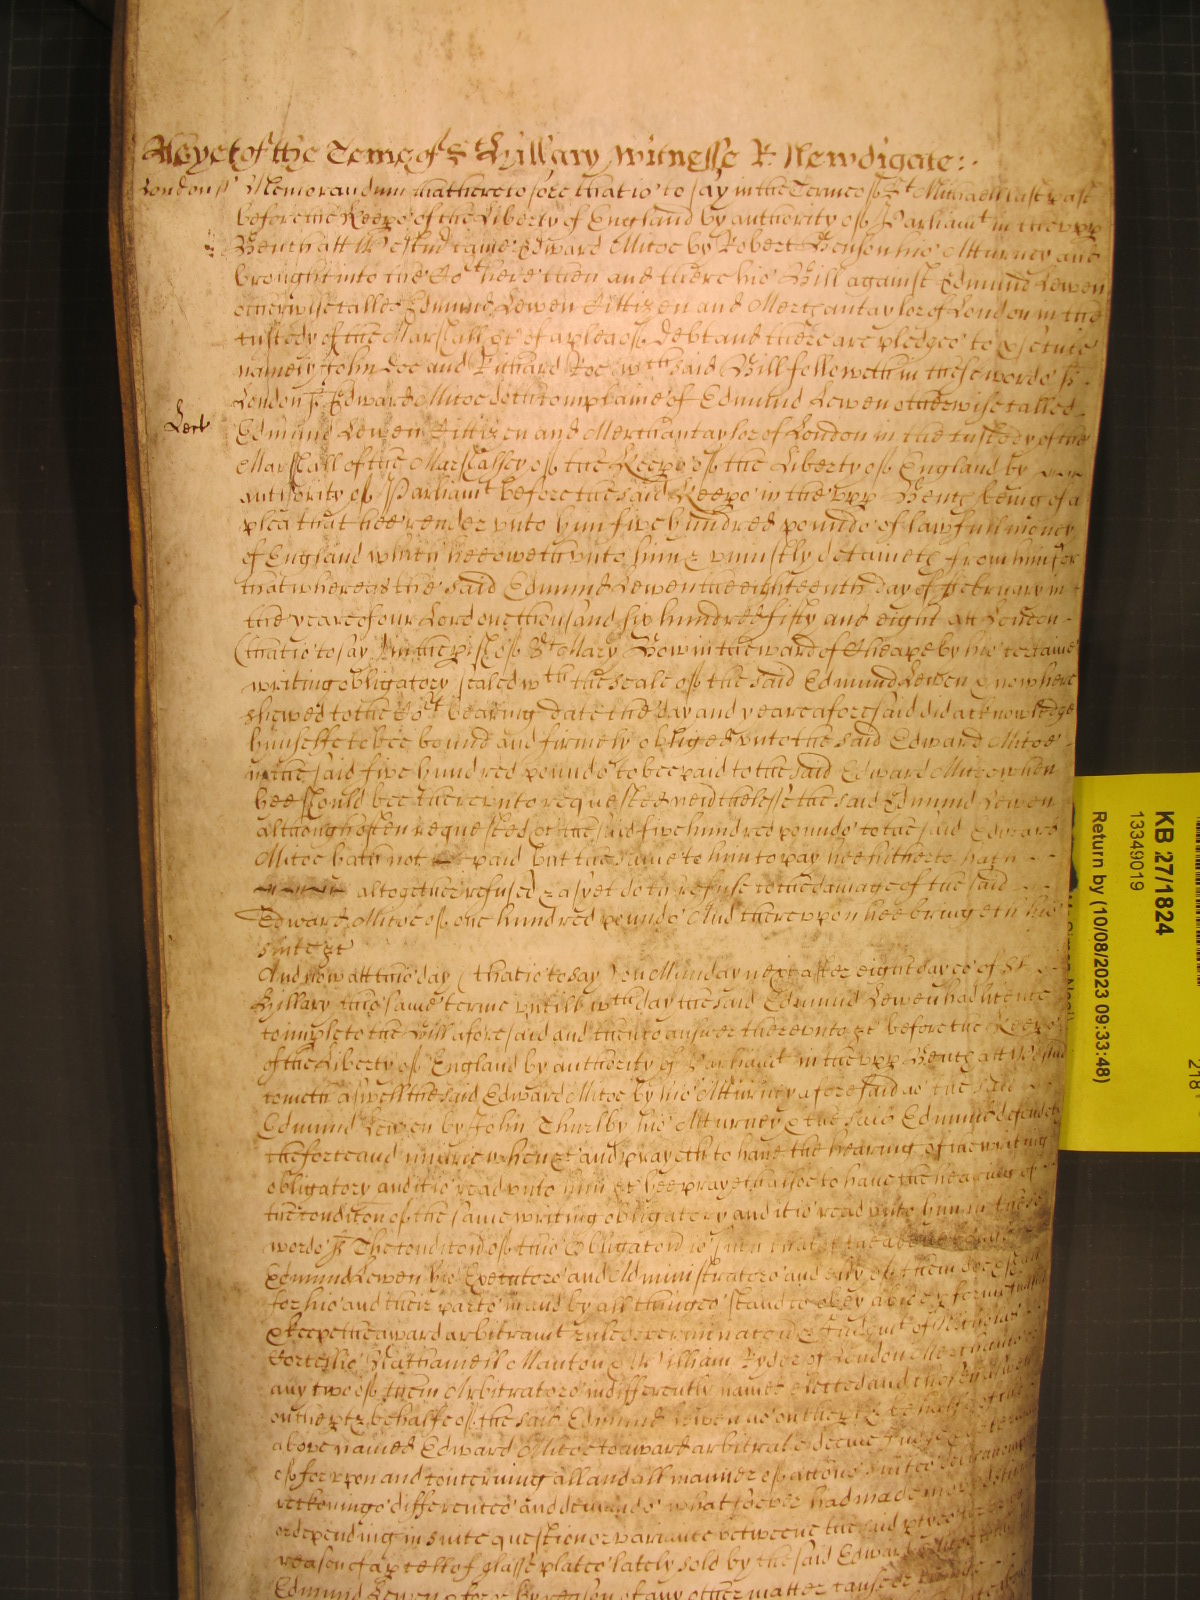 As yet of the Terme of St Hillary Witnesse R: Newdigate:
London ss Memorandum that heretofore that is to say in the Terme of St Michaell last past
before the Keeps of the Liberty of England by authority of Parliamt in the upp
Bench att Westmr came Edward Mitoe by Robert Benson his Atturney and
brought into the Cot here then and there his Bill against Edmund Lewen
otherwise called Edmund Lewen Cittizen and Merchantaylor of London in the
custody of the Marshall &c of a plea of debt and there are pledges to p'secute
namely John Doe and Richard Roe wch said Bill followeth in these words ss
London ss Edward Mitoe doth complaine of Edmund Lewen otherwise called
Lect
Edmund Lewen Cittizen and Merchantaylor of London in the custody of the
Marshall of the Marshalsey of the Keeps of the Liberty of England by
authority of Parliamt before the said Keeps in the upp Bench being of a
plea that hee render unto him five hundred pounds of lawfull money
of England which hee oweth unto him & uniustly deteineth from him for
that whereas the said Edmund Lewen the eighteenth day of February in
the yeare of our Lord one thousand six hundred fifty and eight att London
(that is to say) in the pish of St Mary Bow in the ward of Cheape by his certaine
writing obligatory sealed wth the seale of the said Edmund Lewen & now here
shewed to the Cot bearing date the day and yeare aforesaid did acknowledge
himselfe to bee bound and firmely obliged unto the said Edward Mitoe
in the said five hundred pounds to bee paid to the said Edward Mitoe when
hee should bee thereunto requested nevthelesse the said Edmund Lewen
although often requested &c the said five hundred pounds to the said Edward
Mitoe hath not paid but the same to him to pay hee hitherto hath
altogether refused & as yet doth refuse to the damage of the said
Edward Mitoe of one hundred pounds And thereupon hee bringeth his
suite &c
And now att this day (that is to say) on Munday next after eight dayes of St
Hillary this same terme untill wch day the said Edmund Lewen had licence
to imple to the Bill aforesaid and then to answer thereunto &c before the Keeps
of the Liberty of England by authority of Parliamt in the upp Bench att Westmr
cometh aswell the said Edward Mitoe by his Atturney aforesaid as the said
Edmund Lewen by John Thurlby his Atturney & the said Edmund defendeth
the force and iniurie when &c and prayeth to have the hearing of the writing
obligatory and it is read unto him &c hee prayeth alsoe to have the hearing of
the condicon of the same writing obligatory and it is read unto him in these
words ss The condicon of this Obligacon is such that if the above bound
Edmund Lewen his Executors and Administrators and evy of them doe
for his and their parts in and by all things stand to obey abide pforme fulfill
& keepe the award arbitramt rule determinacon & Judgmt of
Nathaniell Manton & William Ryder of London Merchants or
any two of them Arbitrators indifferently named elected and chosen aswell
on the pt & behalfe of the said Edmund Lewen as on the pt & behalfe of the
above named Edward Mitoe to award arbitrate deeme Judge &
of for upon and concerning all and all manner of accons suites
reckonings differences and demands whatsoever had made moved
or depending in suite question or variance betweene the said ptyes for or by
reason of a pcell of glasse plates lately sold by the said Edward Mitoe to the said
Edmund Lewen & for or by reason of any other matter cause or thing
KB 27/1824
13349019
Return by (10/08/2023 09:33:48)